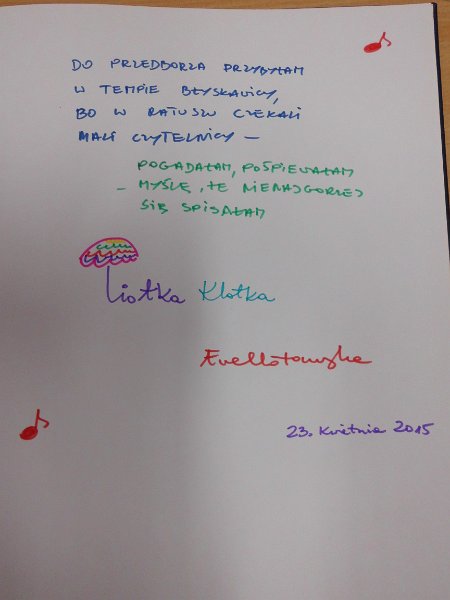 DO PRZEDBORZA PRZYBYŁAM
W TEMPIE BŁYSKAWICY,
BO W RATUSZU CZEKALI
MALI CZYTELNICY —
POGADAŁAM, POŚPIEWAŁAM
– MYŚLĘ, ŻE NIENAJGORZEJ
SIĘ SPISAŁAM
Ciotka Klotka
23. kwietnia 2015